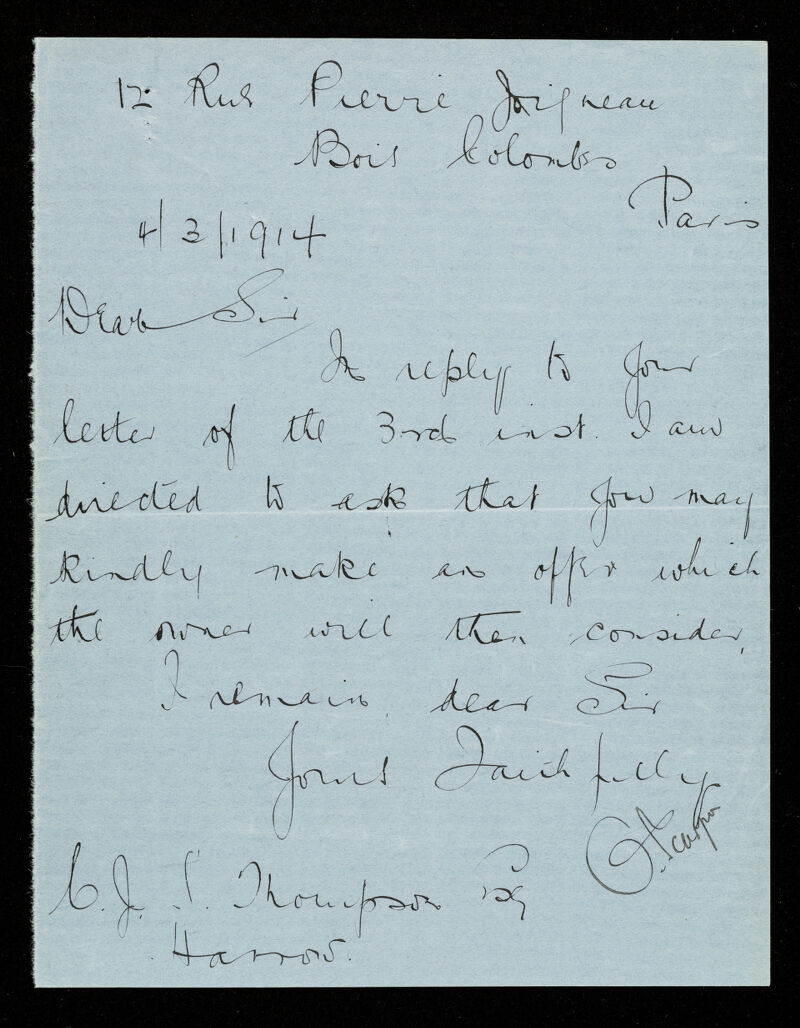 12 Rue Pierre Joigneau
Bois Colombes
Paris
4/3/1914
Dear Sir
In reply to your
letter of the 3rd inst. I am
directed to ask that you may
kindly make an offer which
the owner will then consider.
I remain, dear Sir
Yours Faithfully
C. J. S. Thompson Esq
Harrow.